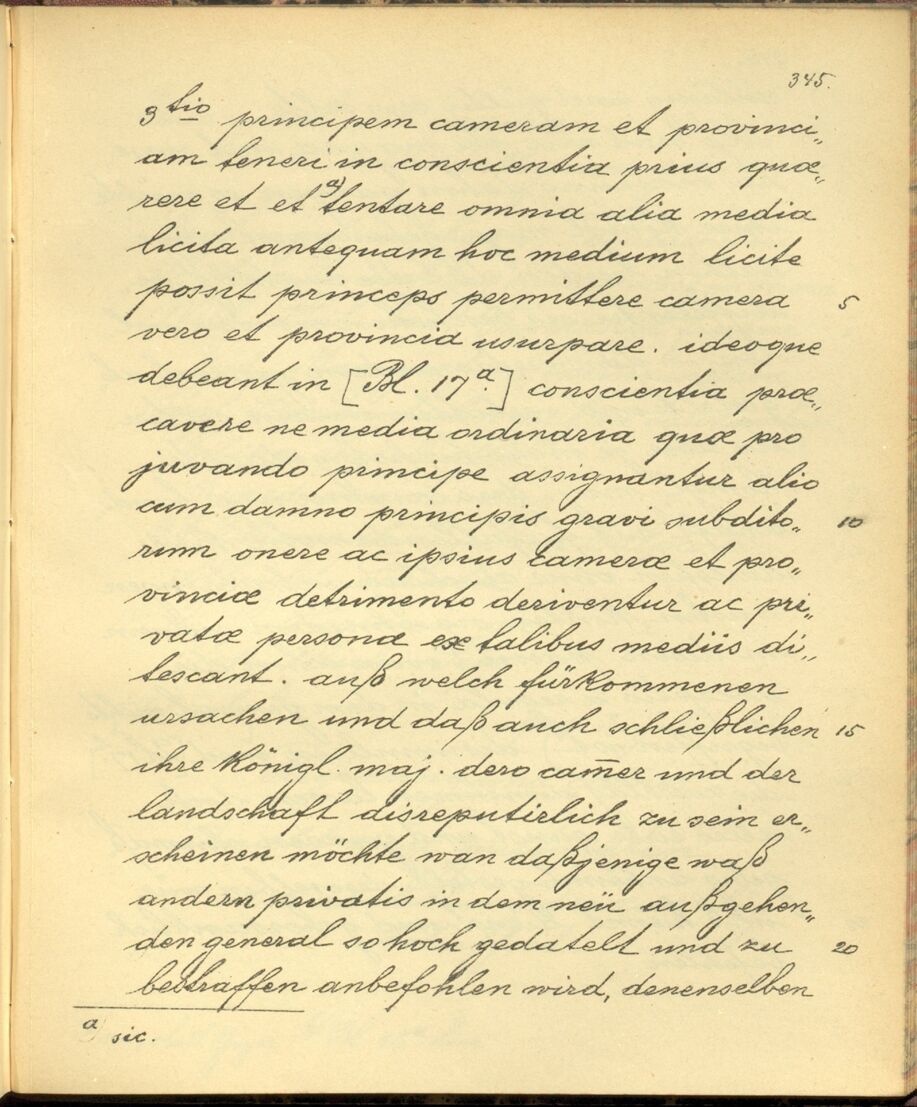 345.
3tio principem cameram et provinci„
am teneri in conscientia prius quæ„
rere et et a) tentare omnia alia media
licita antequam hoc medium licite
possit princeps permittere camera 5
vero et provincia usurpare. ideoque
debeant in [Bl. 17a.] conscientia præ„
cavere ne media ordinaria quæ pro
juvando principe assignantur alio
cum damno principis gravi subdito„ 10
rum onere ac ipsius cameræ et pro„
vinciæ detrimento deriventur ac pri„
vatæ personæ ex talibus mediis di„
tescant. auß welch fürkommenen
ursachen und daß auch schließlichen 15
ihre Königl. maj. dero cam̅er und der
landschaft disreputirlich zu sein er„
scheinen möchte wan daßjenige waß
andern privatis in dem neü außgehen„
den general so hoch gedatelt und zu 20
bestraffen anbefohlen wird, denenselben
a) sic.